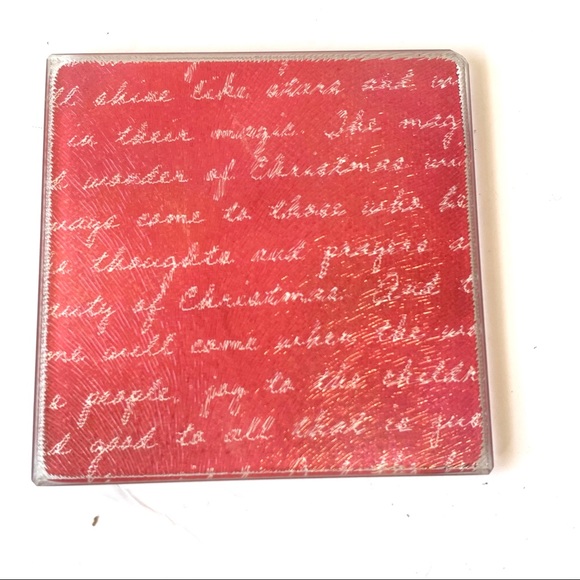 ll shine like stars and
in their magic. The mag
wonder of Christmas
ways come to those who
thoughts and prayers a
uty of Christmas. And t
me will come when the
people, joy to the childr
d good to all that is jus